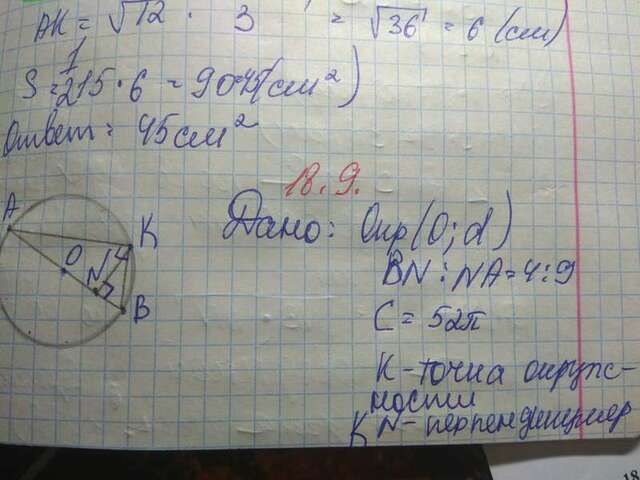 AK = √12 · 3 = √36 = 6 (см)
S = 1/2 15 · 6 = 90 45 (см²)
Ответ: 45 см²
18.9.
Дано: Окр(O; d)
BN : NA = 4 : 9
C = 52π
K - точка окруж-
ности
KN - перпендикуляр
A
K
O
N
B
18